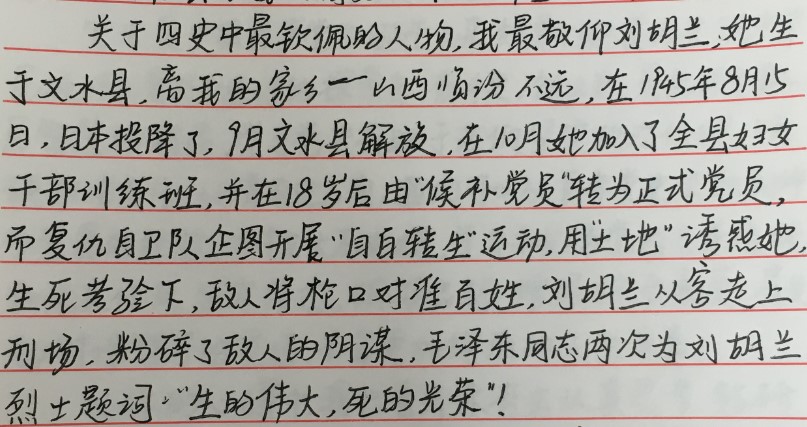 关于四史中最钦佩的人物，我最敬仰刘胡兰，她生
于文水县，离我的家乡一山西临汾不远，在1945年8月15
日，日本投降了，9月文水县解放，在10月她加入了全县妇女
干部训练班，并在18岁后由“候补党员”转为正式党员，
而复仇自卫队企图开展“自白转生”运动，用“土地”诱惑她，
生死考验下，敌人将枪口对准百姓，刘胡兰从容走上
刑场，粉碎了敌人的阴谋，毛泽东同志两次为刘胡兰
烈士题词：“生的伟大，死的光荣”！